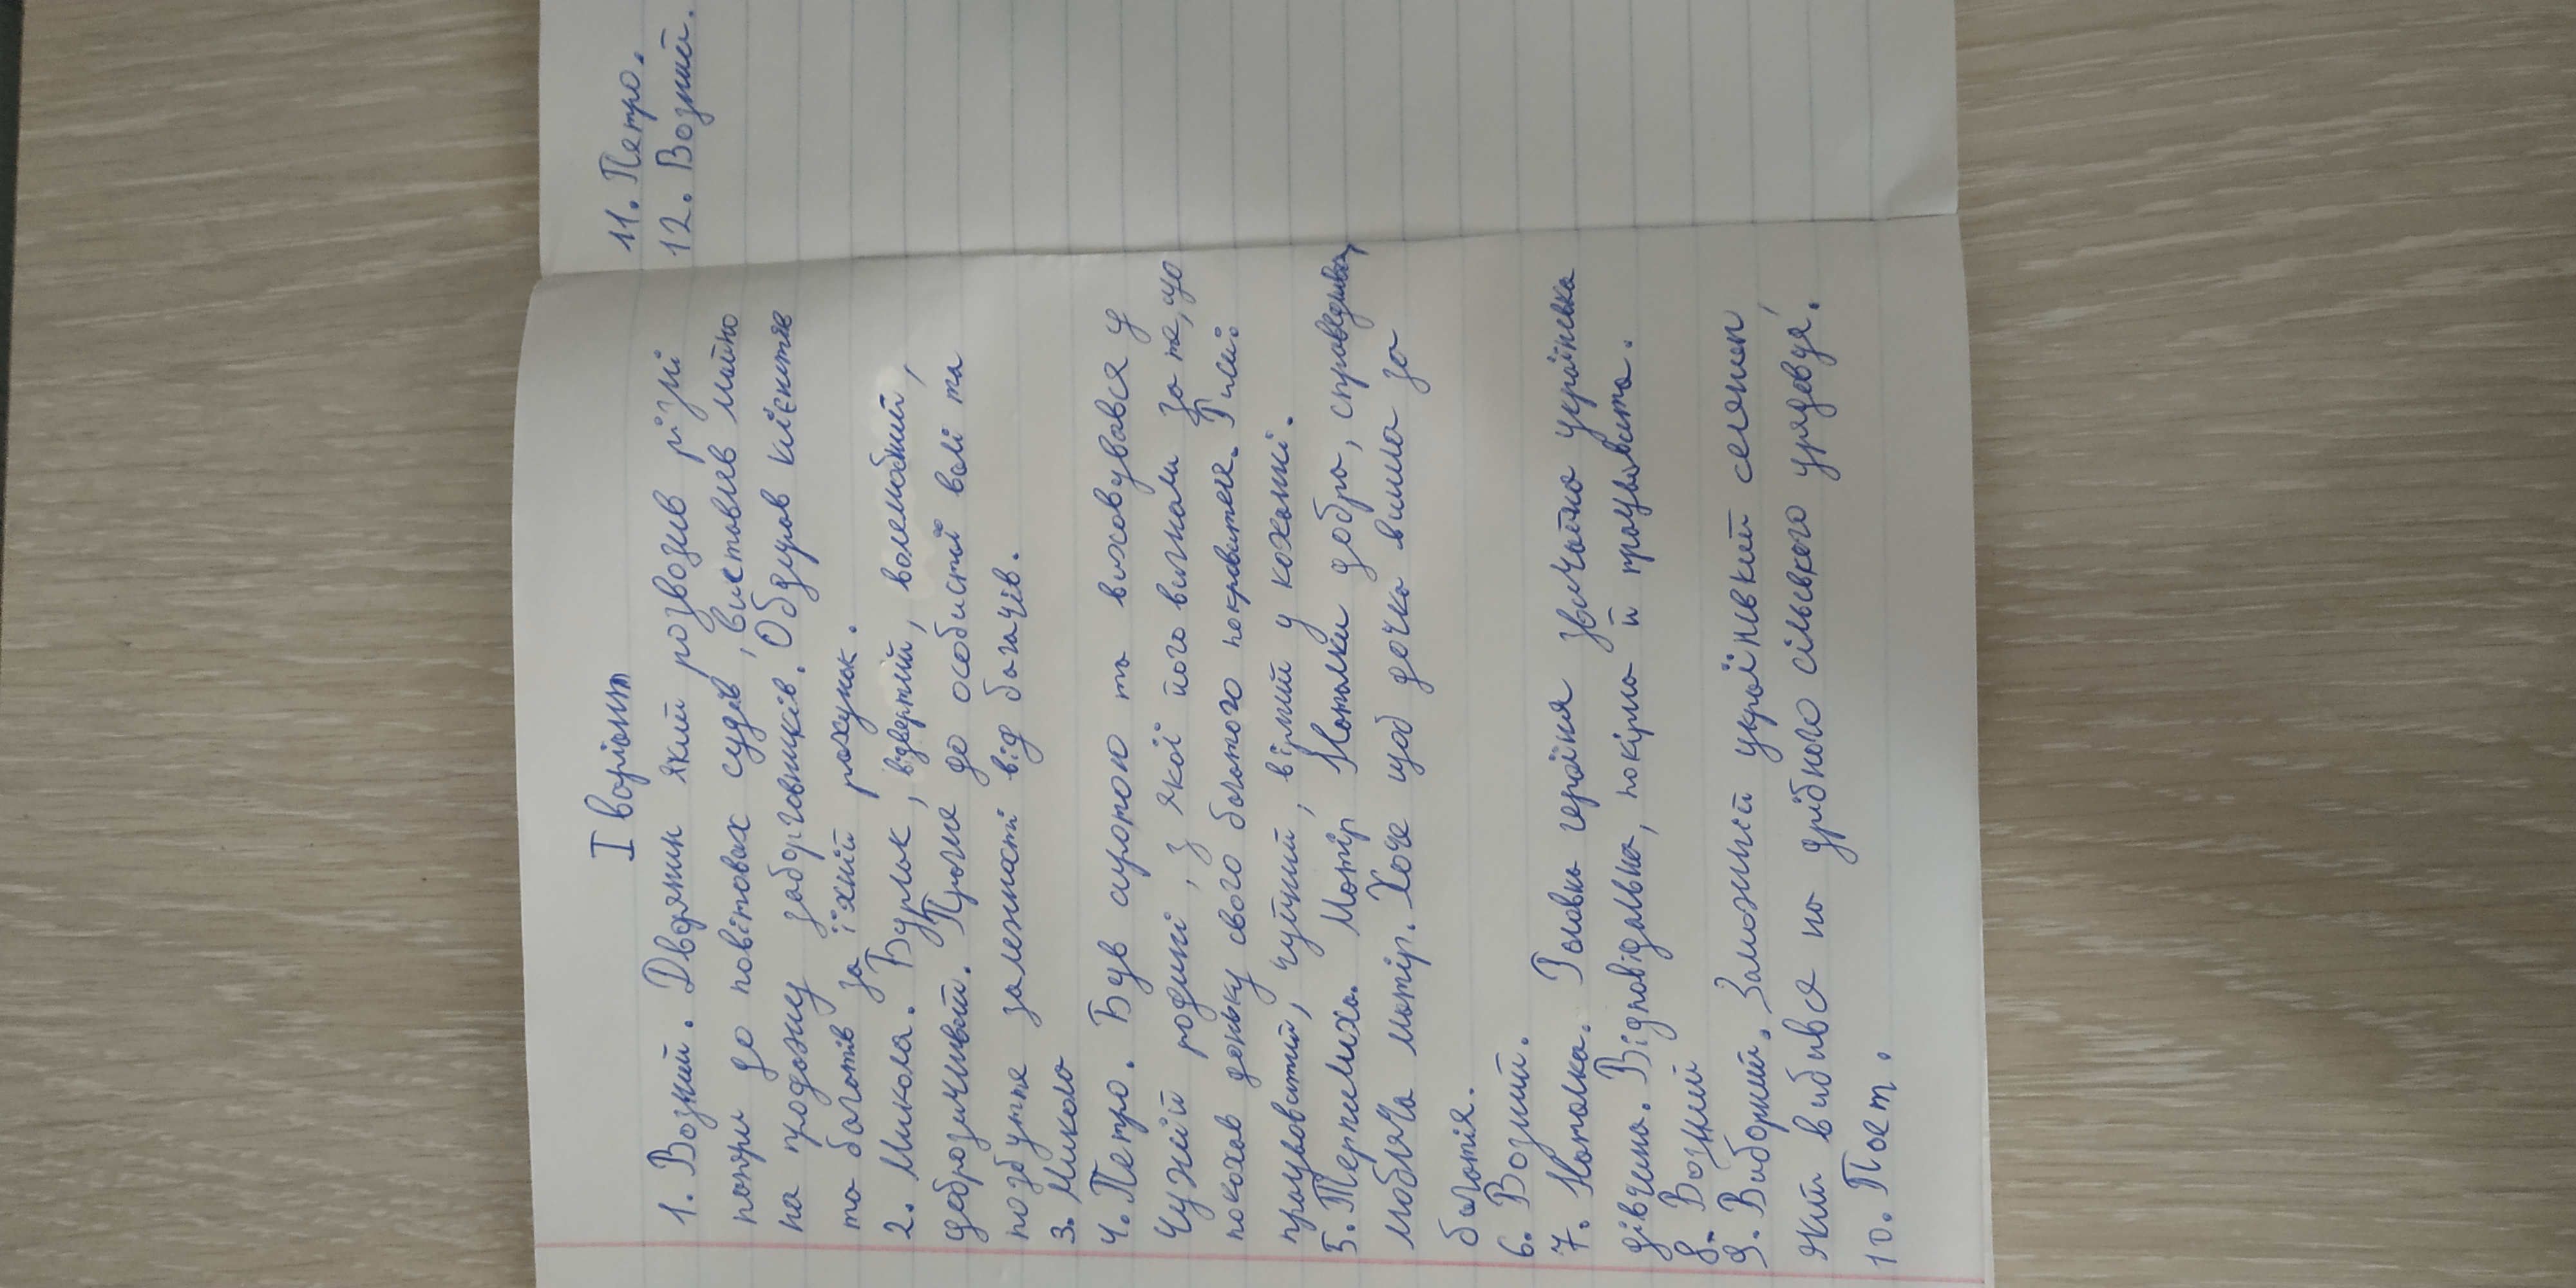 I варіант
1. Возний. Дворянин який розвозив різні
папери до повітовах судів, виставляв майно
на продажу заборговаників. Обдирав клієнтів
та багатів за їхній рахунок.
2. Микола. Бурлак, відвертий, волелюбний,
доброзичливий. Прагне до особистої волі та
позбуття залежності від багачів.
3. Микола
4. Петро. Був сиротою та виховувався у
чужій родині, з якої його вигнали за те, що
покохав доньку свого багатого покровителя. Риси:
працьовитий, чуйний, вірний у коханні.
5. Терпилиха. Матір Наталки добра, справедлива,
любляча матір. Хоче щоб дочка вийшла за
багатія.
6. Возний.
7. Наталка. Головна героїня звичайна українська
дівчина. Відповідальна, покірна й працьовита.
8. Возний
9. Виборний. Заможній український селянин,
який вибився на дрібного сільського урядовця.
10. Поет.
11. Петро.
12. Возний.